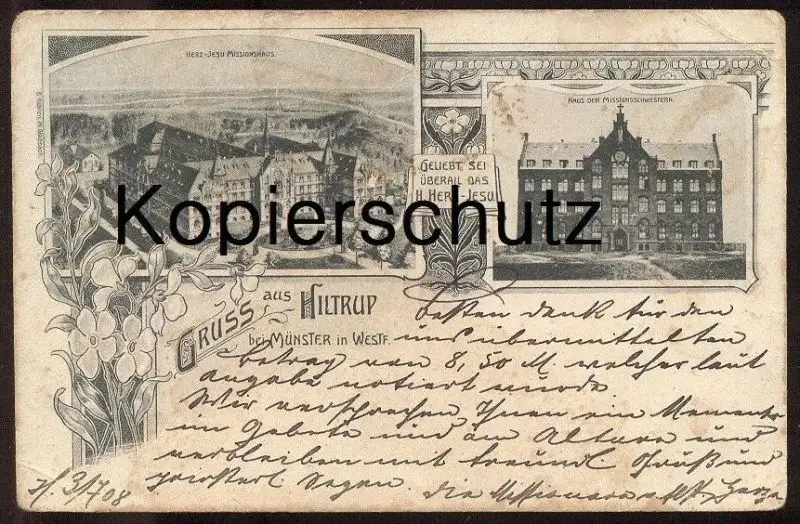 HERZ-JESU MISSIONSHAUS.
HAUS DER MISSIONSSCHWESTERN.
GELIEBT SEI
ÜBERALL DAS
H. HERZ-JESU
Kopierschutz
GRUSS aus HILTRUP
bei MÜNSTER in WESTF.
besten dank für den
uns übermittelten
betrag von 8,50 M. welcher laut
angabe notiert wurde
Wir versprechen Ihnen ein Memento
im Gebete und am Altare und
verbleiben mit freundl. Gruß und
priesterl. Segen.
die Missionare
H. 3/7 08